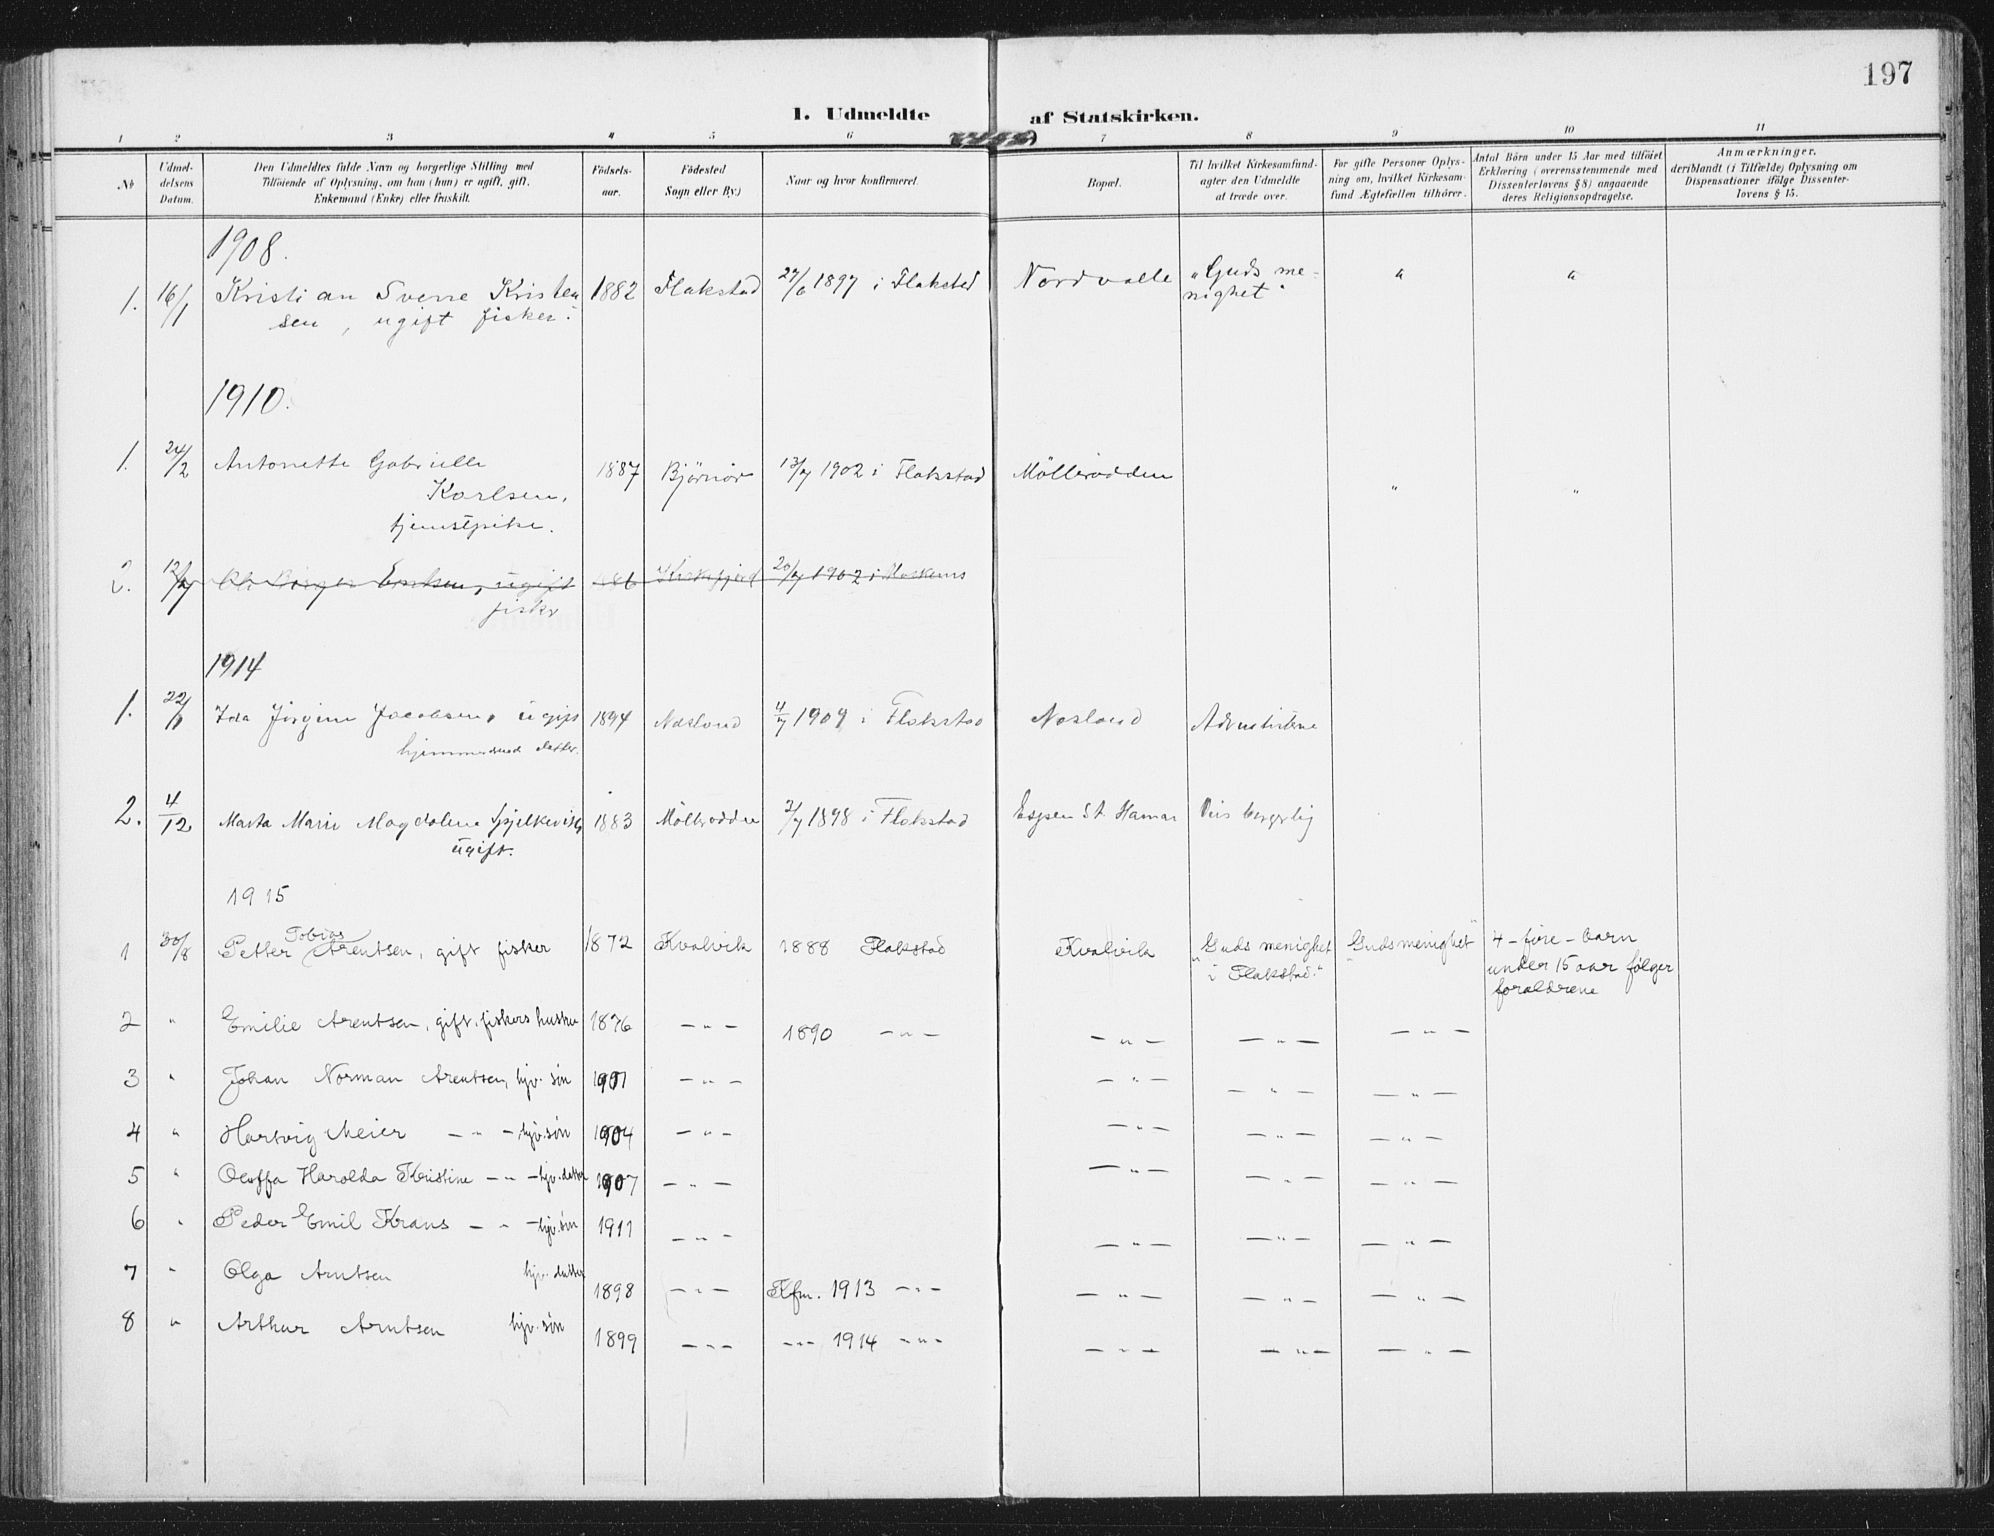 197
1. Udmeldte af Statskirken.
1 2 3 4 5 6 7 8 9 10 11
No
Udmeldelsens Datum.
Den Udmeldtes fulde Navn og borgerlige Stilling med
Tilføiende af Oplysning, om han (hun) er ugift, gift,
Enkemand (Enke) eller fraskilt.
Födsels-
aar.
Födested
Sogn eller By.)
Naar og hvor konfirmeret.
Bopæl.
Til hvilket Kirkesamfund-
agter den Udmeldte
at træde over.
For gifte Personer Oplys-
ning om, hvilket Kirkesam-
fund Ægtefællen tilhörer.
Antal Börn under 15 Aar med tilföiet
Erklæring (overensstemmende med
Dissenterlovens § 8) angaaende
deres Religionsopdragelse.
Anmærkninger.
deriblandt (i Tilfælde) Oplysning om
Dispensationer ifölge Dissenter-
lovens § 15.
1908.
1. 16/1 Kristian Sverre Kristen 1882 Flakstad 27/6 1897 i Flakstad Nordvalle "Guds me- " "
sen, ugift fisker. nighet"
1910.
1. 24/2 Antonette Gabrielle 1887 Bjørnør 13/7 1902 i Flakstad Mölleradden
Karlsen, " "
tjenstpike.
2. 12/7 Erntsen, ugift 20/7 1902 i Moskenes
fisker
1914
1. 22/1 Ida Jörgine Jacobsen, ugift 1894 Nesland 4/7 1909 i Flakstad Nesland Adventisterne
hjemmeværende datter.
2. 4/12 Marta Marie Magdalene 1883 Mölleradden 3/7 1898 i Flakstad Espen St. Hamar borgerlig
ugift.
1915
1 30/8 Petter Tobias Arentsen, gift fisker 1872 Kvalvik 1888 Flakstad Kvalvik "Guds menighet "Gudsmenighet" 4 - fire - barn
i Flakstad." under 15 aar følger
forældrene
2 " Emilie Arentsen, gift, fiskers hustru 1876 - " - 1890 - " - - " - - " - - " -
3 " Johan Norman Arentsen, hjv. søn 1901 - " - - " - - " - - " -
4 " Hartvig Meier - " - hjv. søn 1904 - " - - " - - " - - " -
5 " Harolda Kristine - " - hjv. datter 1907 - " - - " - - " - - " -
6 " Peder Emil Krans - " - hjv. søn 1911 - " - - " - - " - - " -
7 " Olga Arntsen hjv. datter 1898 - " - Kfm. 1913 - " - - " - - " - - " -
8 " Arthur Arntsen hjv. søn 1899 - " - - " - 1914 - " - - " - - " - - " -